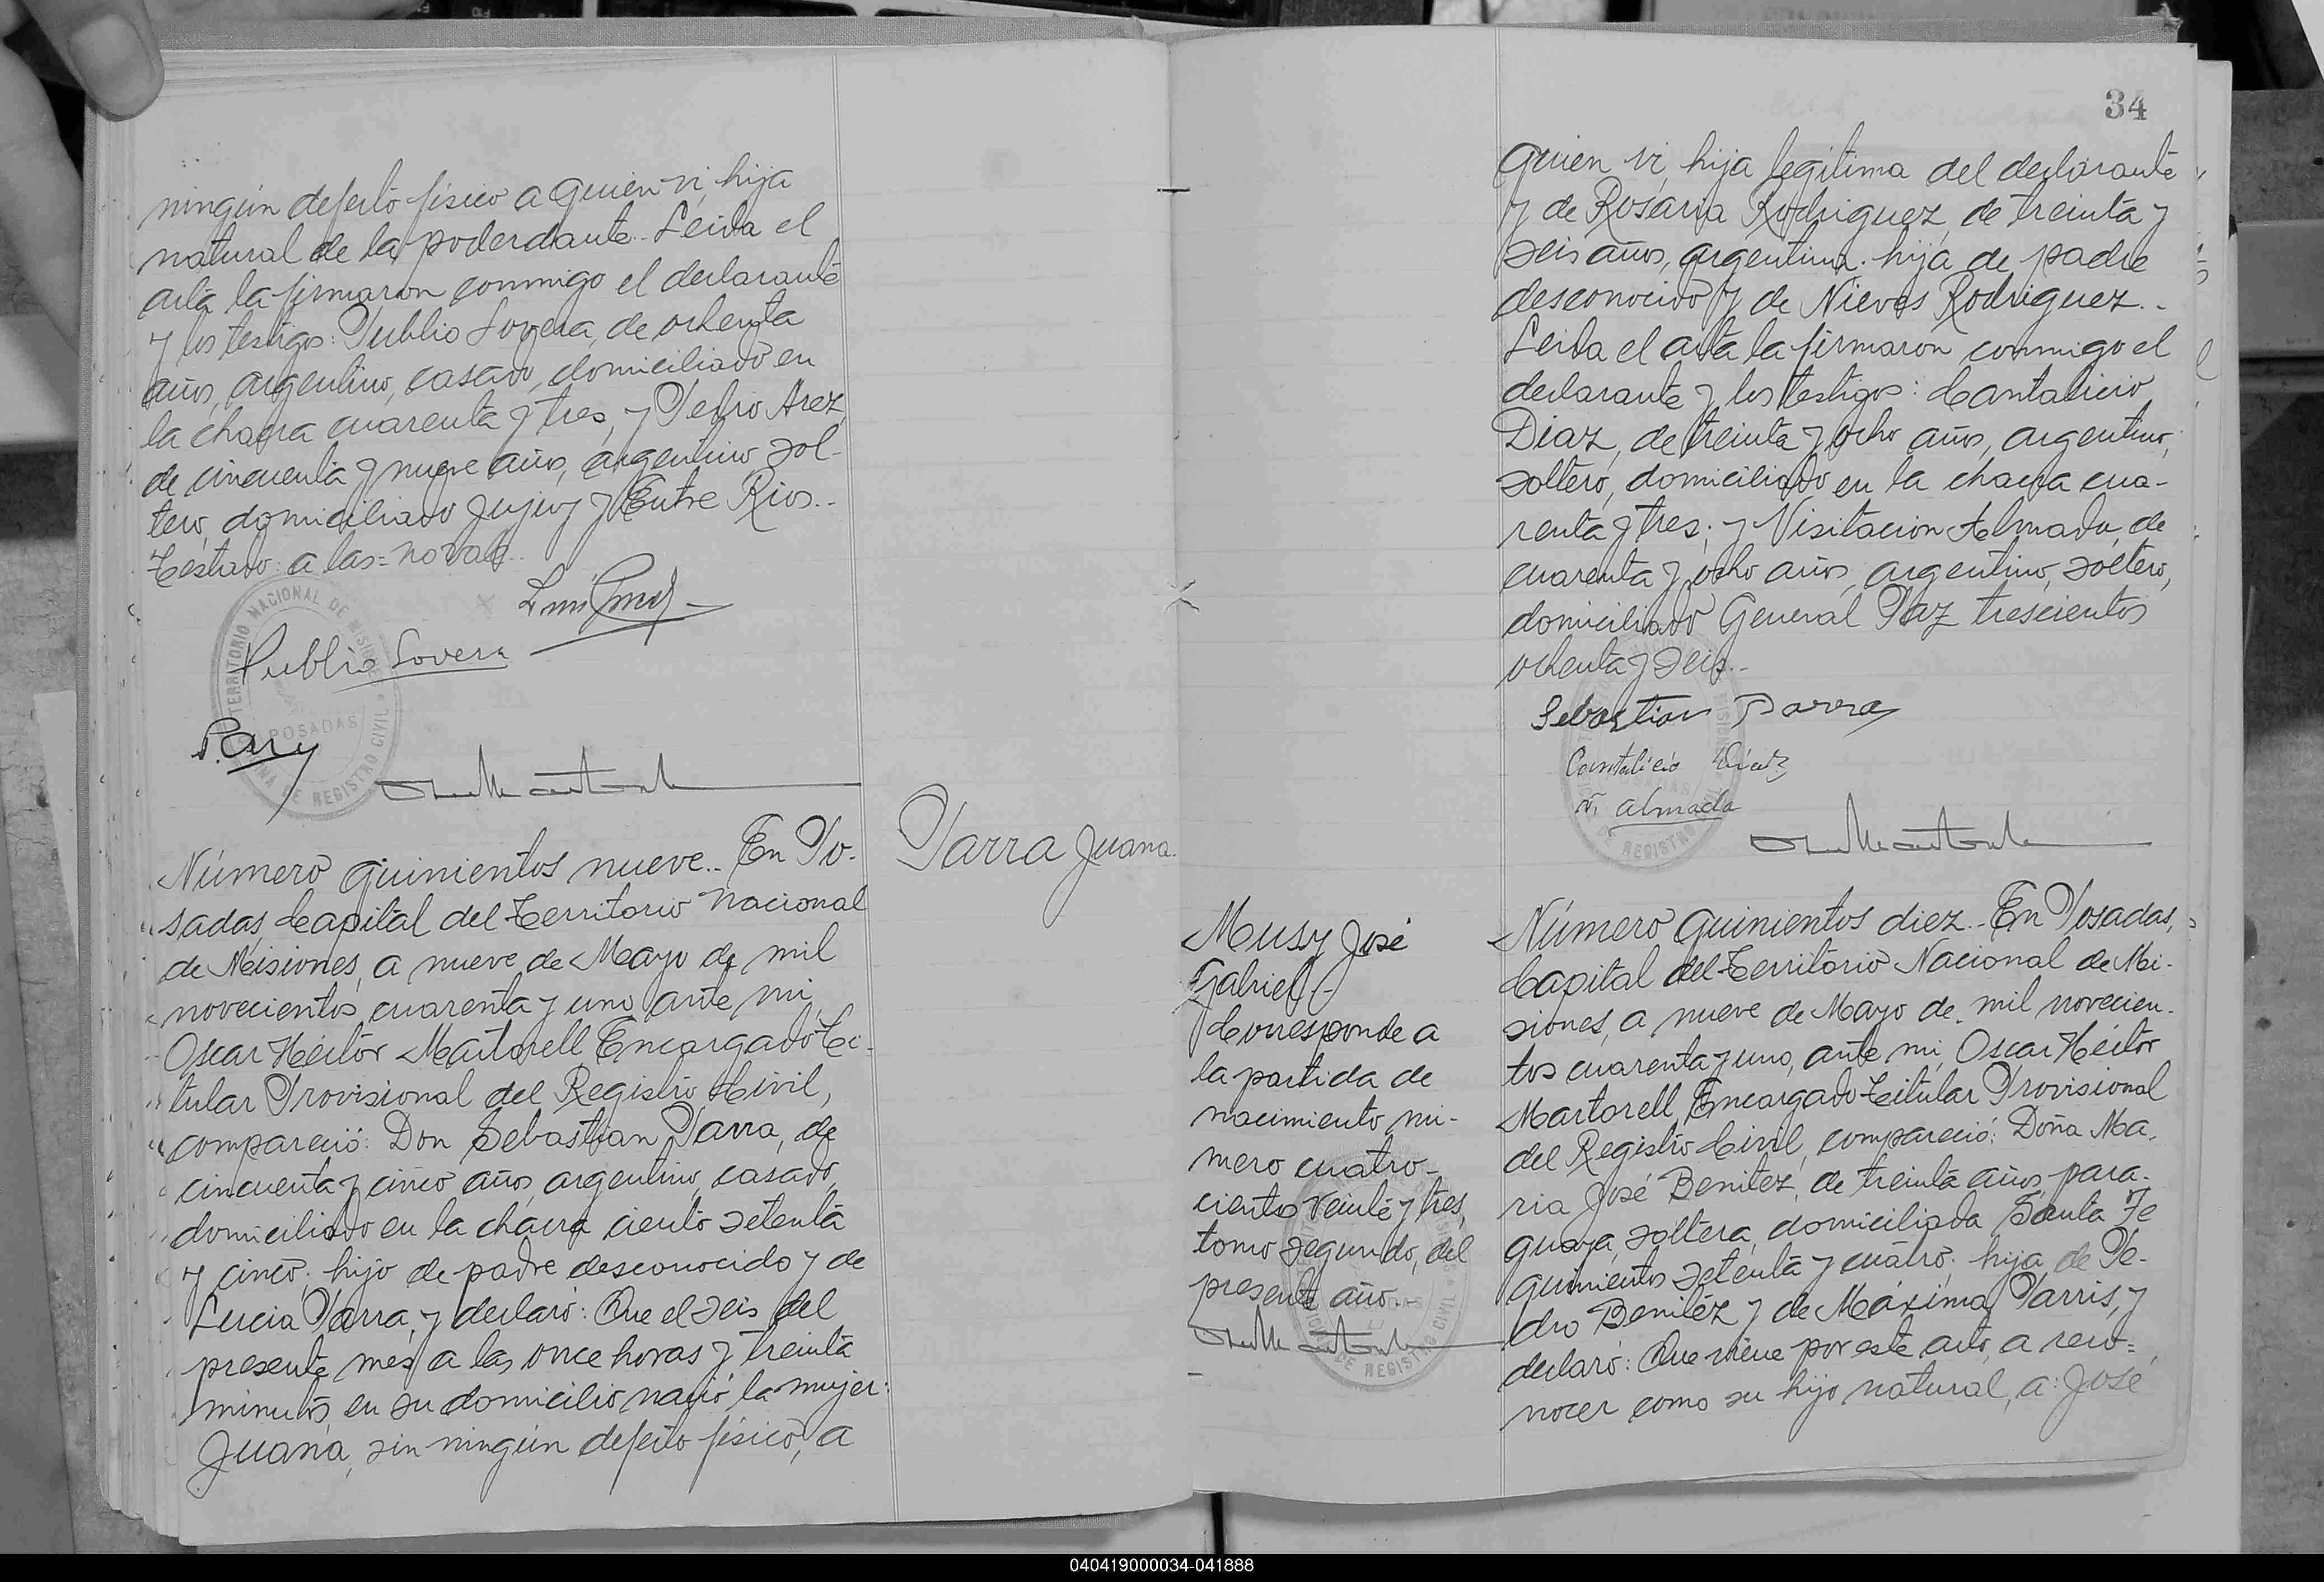 ningún defecto físico a quien vi, hija
natural de la poderdante.- Leida el
acta la firmaron conmigo el declarante
y los testigos: Publio Lovera, de ochenta
años, argentino, casado, domiciliado en
la chacra cuarenta y tres, y Pedro Arez,
de cincuenta y nueve años, argentino, sol-
tero, domiciliado Jujuy y Entre Rios.-
Testado: a las=horas
Publio Lovera
TERRITORIO NACIONAL DE MISIONES
POSADAS
OFICINA DE REGISTRO CIVIL
Número quinientos nueve.- En Po-
sadas, Capital del Territorio Nacional
de Misiones, a nueve de Mayo de mil
novecientos cuarenta y uno, ante mi,
Oscar Héctor Martorell Encargado Ti-
tular Provisional del Registro Civil,
compareció: Don Sebastian Parra, de
cincuenta y cinco años, argentino, casado,
domiciliado en la chacra ciento setenta
y cinco; hijo de padre desconocido y de
Lucia Parra, y declaró: Que el seis del
presente mes a las once horas y treinta
minutos, en su domicilio nació la mujer:
Juana, sin ningún defecto físico, a
Parra Juana.
34
quien vi, hija legitima del declarante
y de Rosaria Rodriguez, de treinta y
seis años, argentina. hija de padre
desconocido y de Nieves Rodriguez.-
Leida el acta la firmaron conmigo el
declarante y los testigos: Cantalicio
Diaz, de treinta y ocho años, argentino,
soltero, domiciliado en la chacra cua-
renta y tres; y Visitacion Almada, de
cuarenta y ocho años, argentino, soltero,
domiciliado General Paz trescientos
ochenta y seis.-
Sebastian Parra
Cantalicio Diaz
V. Almada
DE REGISTRO CIVIL
Musy José
Gabriel.-
Corresponde a
la partida de
nacimiento nú-
mero cuatro-
cientos veinte y tres,
tomo segundo, del
presente año.-
DE REGISTRO CIVIL
Número quinientos diez.- En Posadas,
Capital del Territorio Nacional de Mi-
siones, a nueve de Mayo de mil novecien-
tos cuarenta y uno, ante mi, Oscar Héctor
Martorell, Encargado Titular Provisional
del Registro Civil, compareció: Doña Ma-
ria José Benitez, de treinta años, para-
guaya, soltera, domiciliada Santa Fe
quinientos setenta y cuatro; hija de Pe-
dro Benitez y de Máxima Parris, y
declaró: Que viene por este acto, a reco-
nocer como su hijo natural, a: José
040419000034-041888